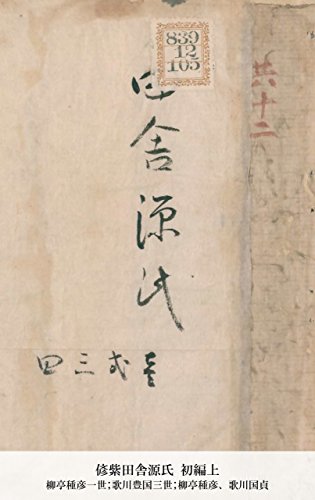 839
12
105
共十二
田舎源氏
壱弐三四
偐紫田舎源氏 初編上
柳亭種彦一世;歌川豊国三世;柳亭種彦、歌川国貞